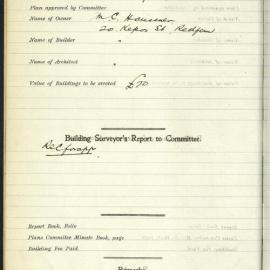 Plan approved by Committee
Name of Owner M. C.
20, St, Redfern
Name of Builder "
Name of Architect "
Value of Buildings to be erected £70
Building Surveyor's Report to Committee.
Report Book, Folio
Plans Committee Minute Book, page
Building Fee Paid
Remarks